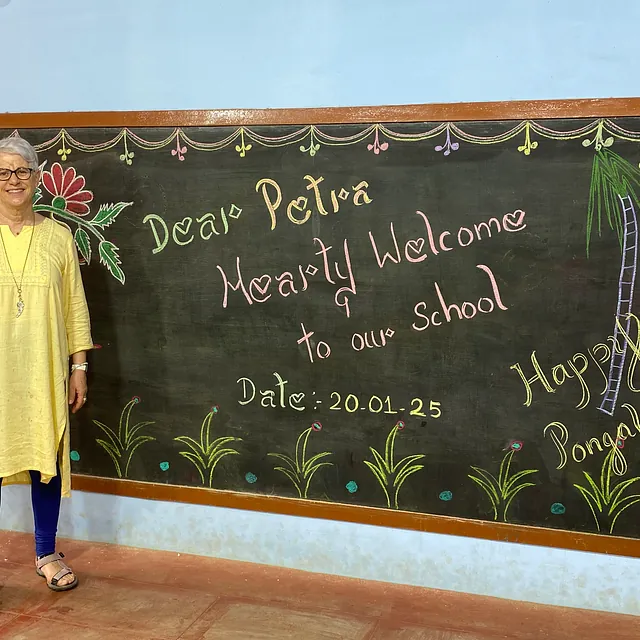 Dear Petra
Hearty Welcome
to our School
Date :- 20.01.25
Happy
Pongal